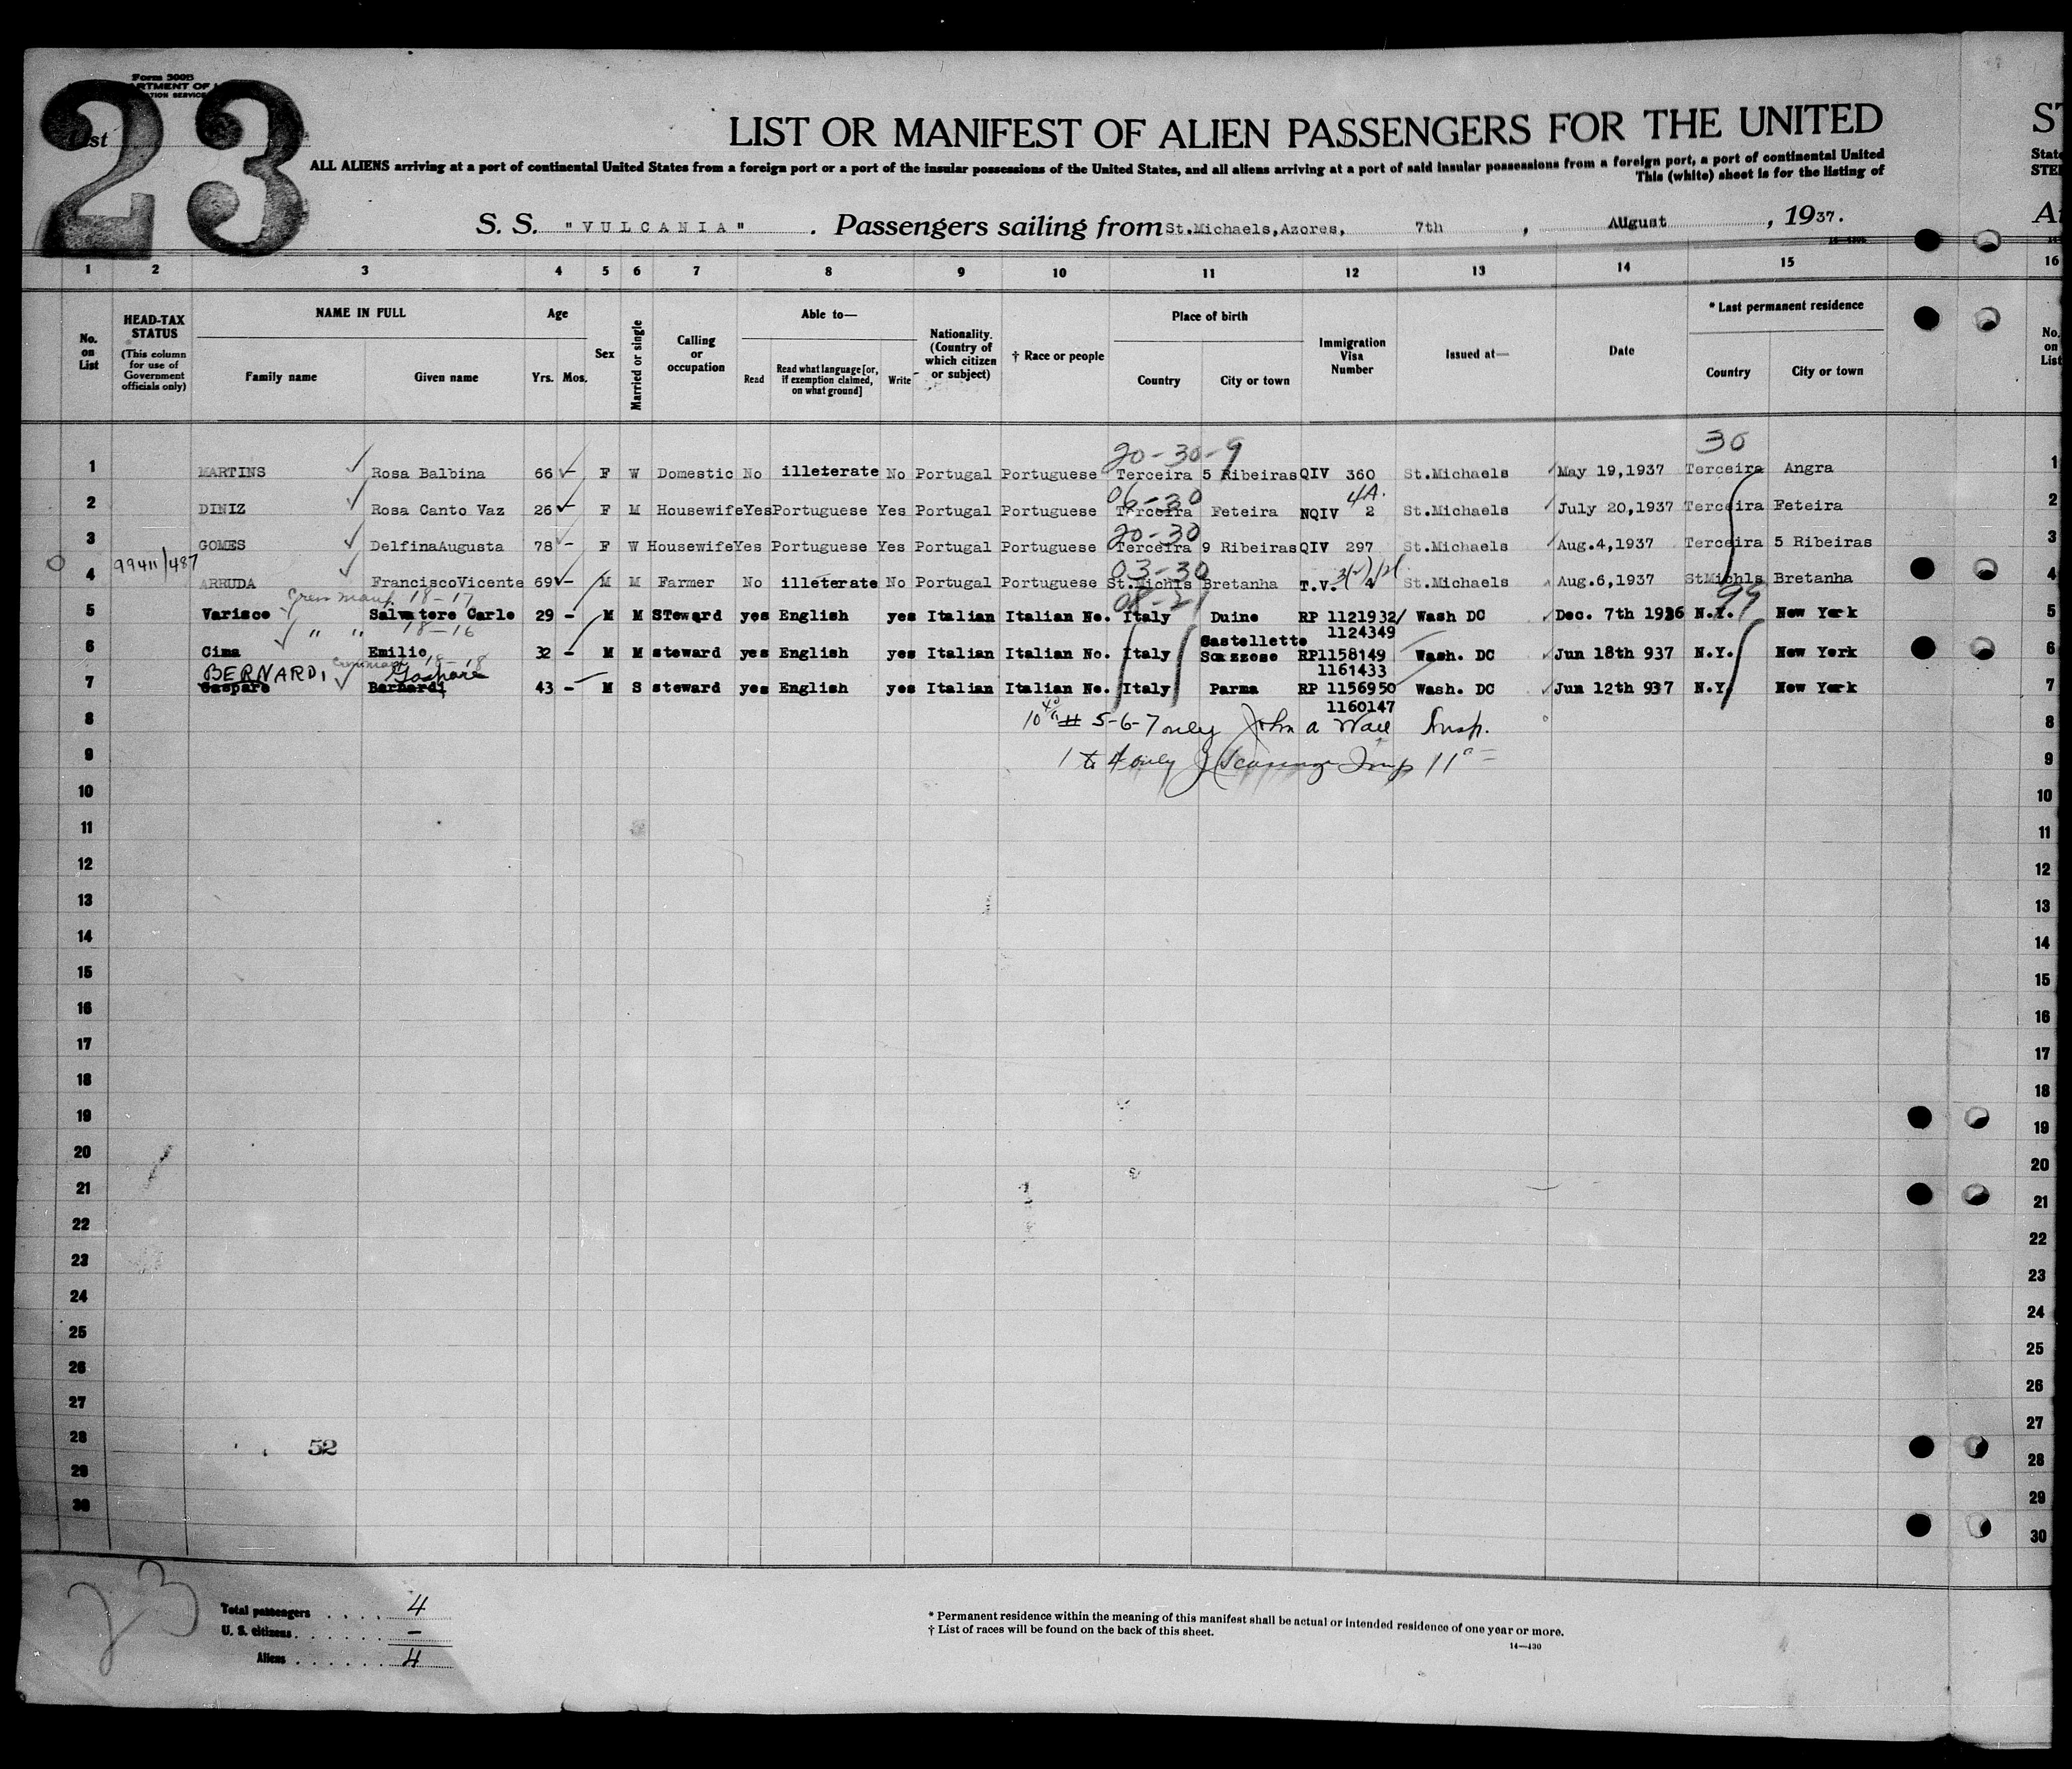 Form 500B
23
List
LIST OR MANIFEST OF ALIEN PASSENGERS FOR THE UNITED
ST
ALL ALIENS arriving at a port of continental United States from a foreign port or a port of the insular possessions of the United States, and all aliens arriving at a port of said insular possessions from a foreign port, a port of continental United
This (white) sheet is for the listing of
S. S. "VULCANIA". Passengers sailing from St.Michaels,Azores, 7th, August, 1937.
1 2 3 4 5 6 7 8 9 10 11 12 13 14 15 16
No. on List
HEAD-TAX STATUS (This column for use of Government officials only)
NAME IN FULL Family name Given name
Age Yrs. Mos.
Sex
Married or single
Calling or occupation
Able to— Read Read what language [or, if exemption claimed, on what ground] Write
Nationality. (Country of which citizen or subject)
† Race or people
Place of birth Country City or town
Immigration Visa Number
Issued at—
Date
* Last permanent residence Country City or town
No. on List
20-30-9 30
1 MARTINS Rosa Balbina 66 F W Domestic No illeterate No Portugal Portuguese Terceira 5 Ribeiras QIV 360 St.Michaels May 19,1937 Terceira Angra 1
06-30 4A.
2 DINIZ Rosa Canto Vaz 26 F M Housewife Yes Portuguese Yes Portugal Portuguese Terceira Feteira NQIV 2 St.Michaels July 20,1937 Terceira Feteira 2
20-30
3 GOMES DelfinaAugusta 78 - F W Housewife Yes Portuguese Yes Portugal Portuguese Terceira 9 Ribeiras QIV 297 St.Michaels Aug.4,1937 Terceira 5 Ribeiras 3
99411/487 03-30
4 ARRUDA FranciscoVicente 69 - M M Farmer No illeterate No Portugal Portuguese St.Michls Bretanha T.V. 4 St.Michaels Aug.6,1937 StMichls Bretanha 4
18-17 08-21 99
5 Varisco Salvatore Carlo 29 - M M STeward yes English yes Italian Italian No. Italy Duino RP 1121932/ Wash DC Dec. 7th 1936 N.Y. New York 5
" " 18-16 1124349
6 Cima Emilio 32 - M M steward yes English yes Italian Italian No. Italy Castellette Scazzoso RP1158149 Wash. DC Jun 18th 937 N.Y. New York 6
BERNARDI Gaspare 18-18 1161433
7 Gaspare Bernardi 43 - M S steward yes English yes Italian Italian No. Italy Parma RP 1156950 Wash. DC Jun 12th 937 N.Y. New York 7
1160147
8 5-6-7 only John a Wall Insp. 8
9 1 to 4 only 9
10 10
11 11
12 12
13 13
14 14
15 15
16 16
17 17
18 18
19 19
20 20
21 21
22 22
23 23
24 24
25 25
26 26
27 27
28 52 28
29 29
30 30
23
Total passengers . . . . 4
U. S. citizens . . . . . . -
Aliens . . . . . . 4
* Permanent residence within the meaning of this manifest shall be actual or intended residence of one year or more.
† List of races will be found on the back of this sheet.
14—430